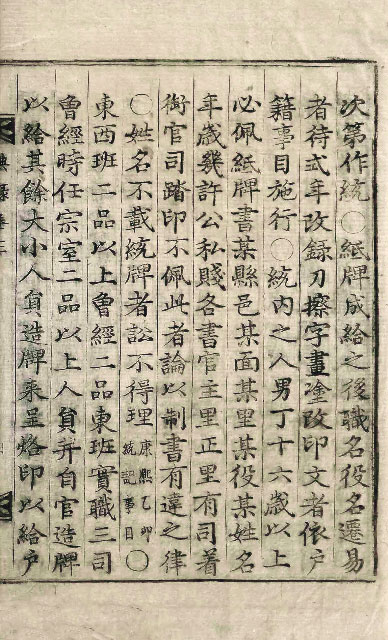 次第作統○紙牌成給之後職名役名遷易
者待式年改錄刀擦字畫塗改印文者依戶
籍事目施行○統內之人男丁十六歲以上
必佩紙牌書某縣邑某面某里某役某姓名
年歲幾許公私賤各書官主里正里有司着
銜官司踏印不佩此者論以制書有違之律
○姓名不載統牌者訟不得理康熙乙卯統記事目○
東西班二品以上曾經二品東班實職三司
曾經時任宗室二品以上人員幷自官造牌
以給其餘大小人員造牌來呈烙印以給戶
典錄卷三